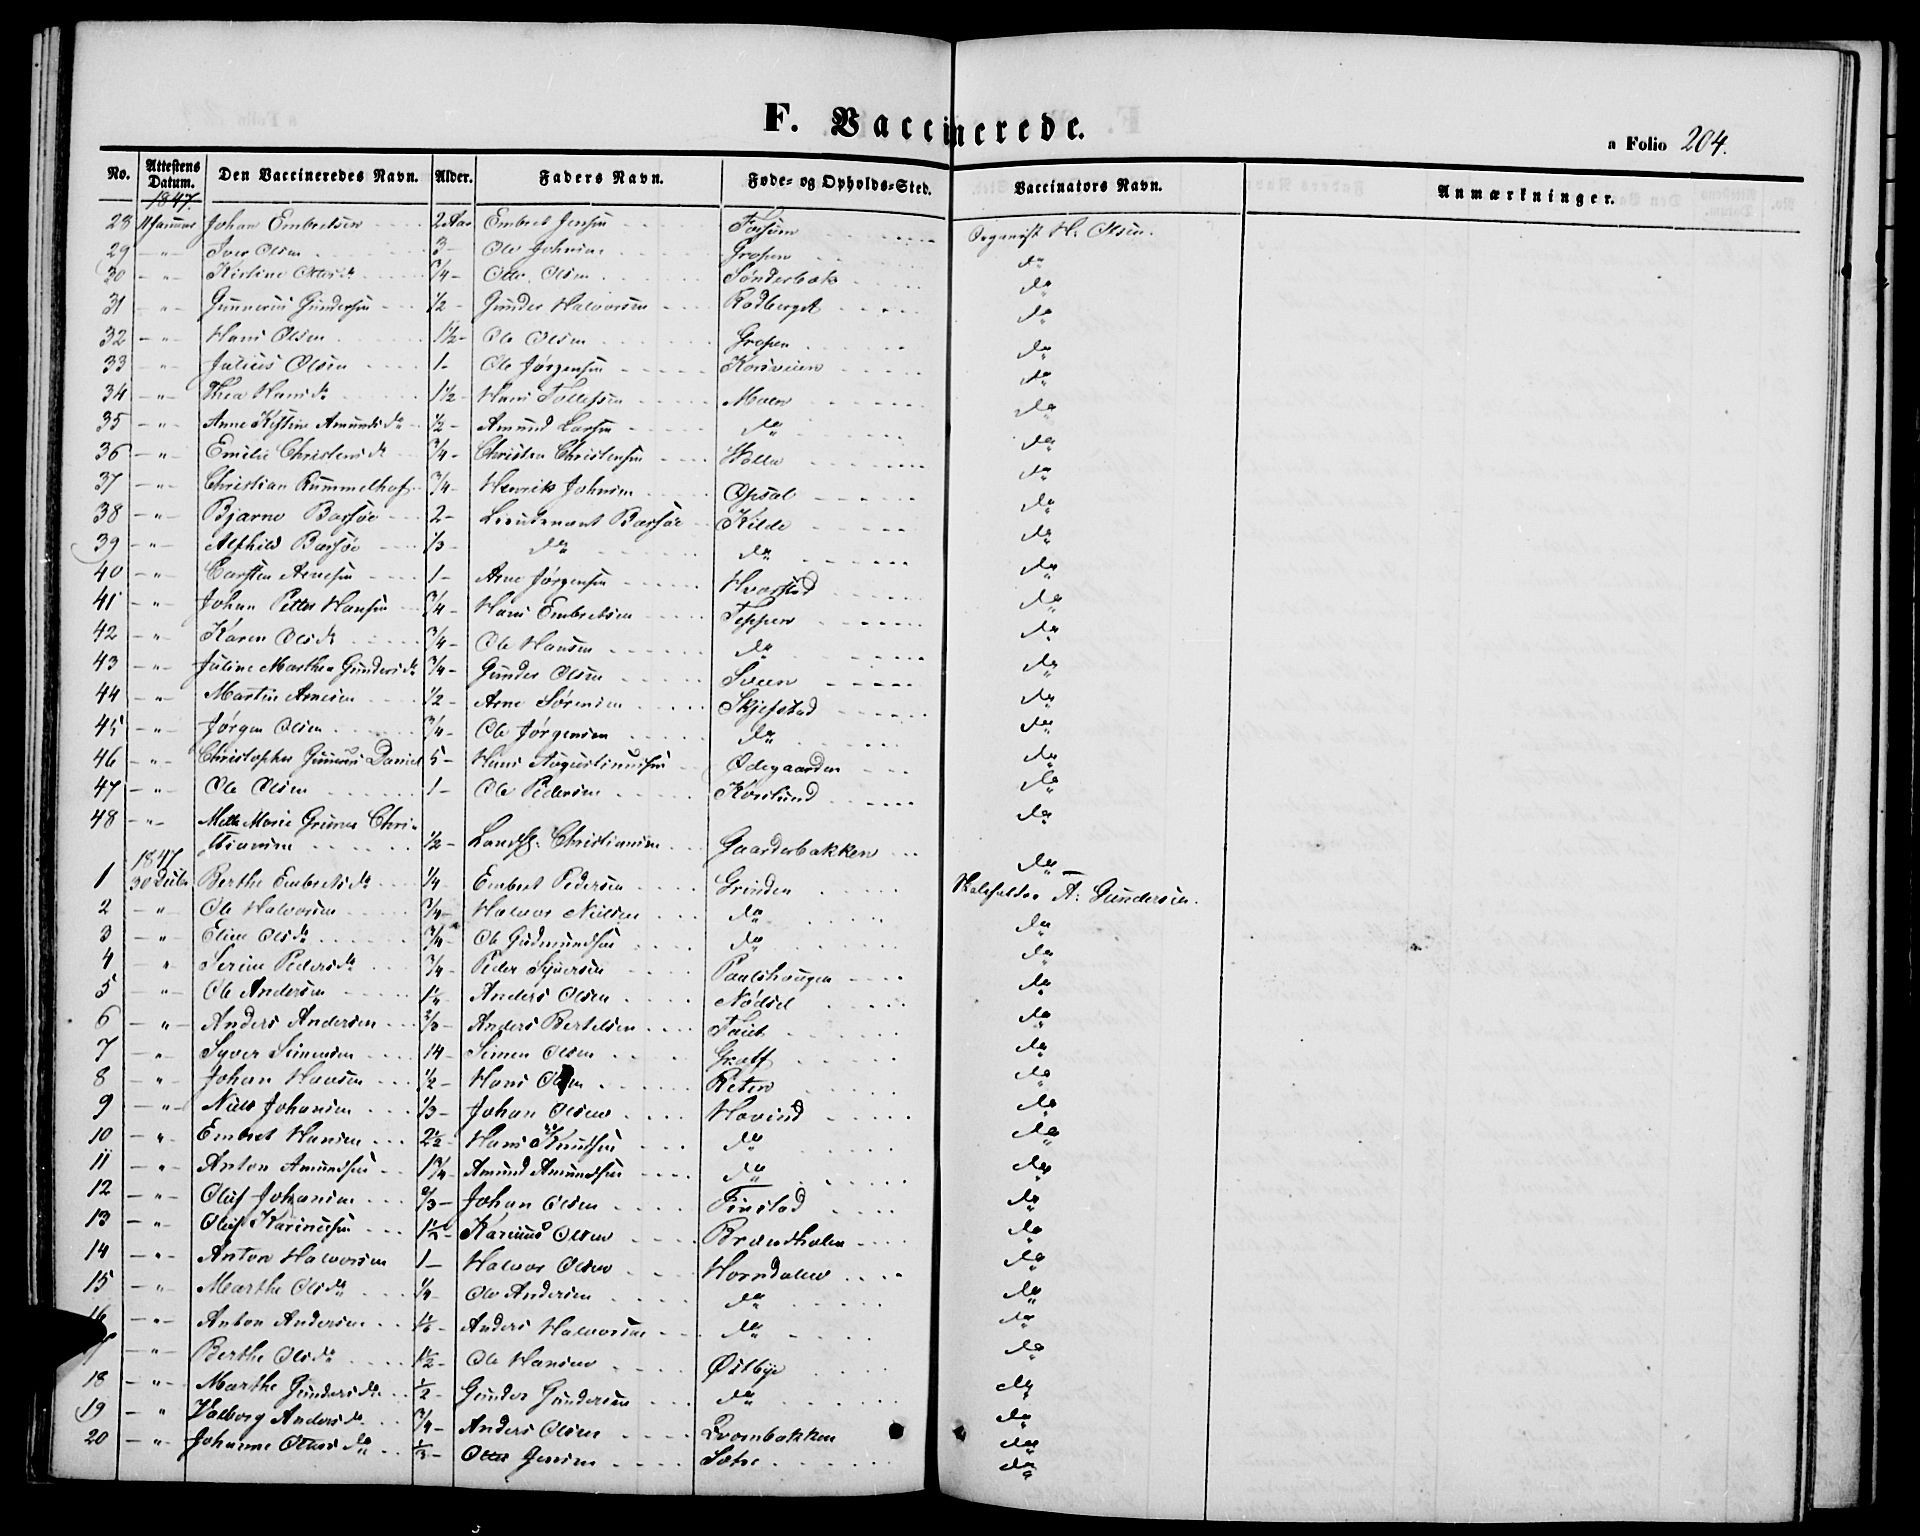 F. Vaccinerede.
a Folio 204.
No. Attestens Datum. Den Vaccineredes Navn. Alder. Faders Navn. Føde- og Opholds-Sted. Vaccinators Navn. Anmærkninger.
1847.
28 Johan Embretsen 2 Aar Embret Jensen Fossum Organist H. Olsen.
29 -"- Iver Olsen 3 - Ole Johnsen Gropen do
30 -"- Kirstine Ottersdr 3/4 - Otter Olsen Sønderbak do
31 -"- Gunnerius Gundersen 1/2 - Gunder Halvorsen Rodberget do
32 -"- Hans Olsen 1 1/2 - Ole Olsen Gropen do
33 -"- Julius Olsen 1 - Ole Jørgensen Korsveien do
34 -"- Thea Hansdr 1 1/2 - Hans Tollefsen Moen do
35 -"- Anne Kistine Amundsdr 1/2 - Amund Larsen do do
36 -"- Emilie Christensdr 3/4 - Christen Christensen do
37 -"- Christian Rummelhof 3/4 - Henrik Johnsen Opsal do
38 -"- Bjarne Barsøe 2 - Lieutenant Barsøe Kilde do
39 -"- Alfhild Barsøe 1/3 - do do do
40 -"- Carsten Arnesen 1 - Arne Jørgensen Hvarstad do
41 -"- Johan Petter Hansen 3/4 - Hans Embretsen Teppen do
42 -"- Karen Olsdr 3/4 - Ole Hansen do do
43 -"- Juline Marthea Gundersdr 3/4 - Gunder Olsen Sveen do
44 -"- Martin Arnesen 1/2 - Arne Sørensen Skjefstad do
45 -"- Jørgen Olsen 3/4 - Ole Jørgensen do do
46 -"- Christopher Gunerius Daniel 5 - Hans Augustinussen Ødegaarden do
47 -"- Ole Olsen 1 - Ole Pedersen Korslund do
48 -"- Mette Marie Grunes Chri-
stiansen 1/2 - Christiansen Gaarderbakken do
1847
1 30 Berthe Embretsdr 1/4 Embret Pedersen Grinden Skoleholder A. Gundersen.
2 -"- Ole Halvorsen 3/4 - Halvor Nielsen do do
3 -"- Eline Olsdr 3/4 - Ole Gudmundsen do do
4 " Serine Pedersdr 3/4 - Peder Syversen Paalshougen do
5 -"- Ole Andersen Anders Olsen do
6 -"- Anders Andersen 2/3 - Anders Bertelsen do
7 -"- Syver Simensen 14 - Simen Olsen Græff do
8 -"- Johan Hansen 1/2 - Hans Olsen do
9 -"- Niels Johansen 1/3 - Johan Olsen Hovind do
10 -"- Embret Hansen 2 1/2 - Hans Knudsen do do
11 -"- Anton Amundsen 1 3/4 - Amund Amundsen do do
12 -"- Oluf Johansen 2/3 - Johan Olsen Finstad do
13 -"- Oluf Karinusen 1 1/2 - Karinus Olsen Brændholen do
14 -"- Anton Halvorsen 1 - Halvor Olsen Horndalen do
15 -"- Marthe Olsdr 1/4 - Ole Andersen do do
16 -"- Anton Andersen Anders Halvorsen do do
-"- Berthe Olsdr 1 1/2 - Ole Hansen Østbye do
18 -"- Marthe Gundersdr 1/2 - Gunder Gundersen do do
19 -"- Valborg Andersdr 3/4 - Anders Olsen do
20 -"- Johanne Ottersdr 1/3 - Otter Jensen Sætre do